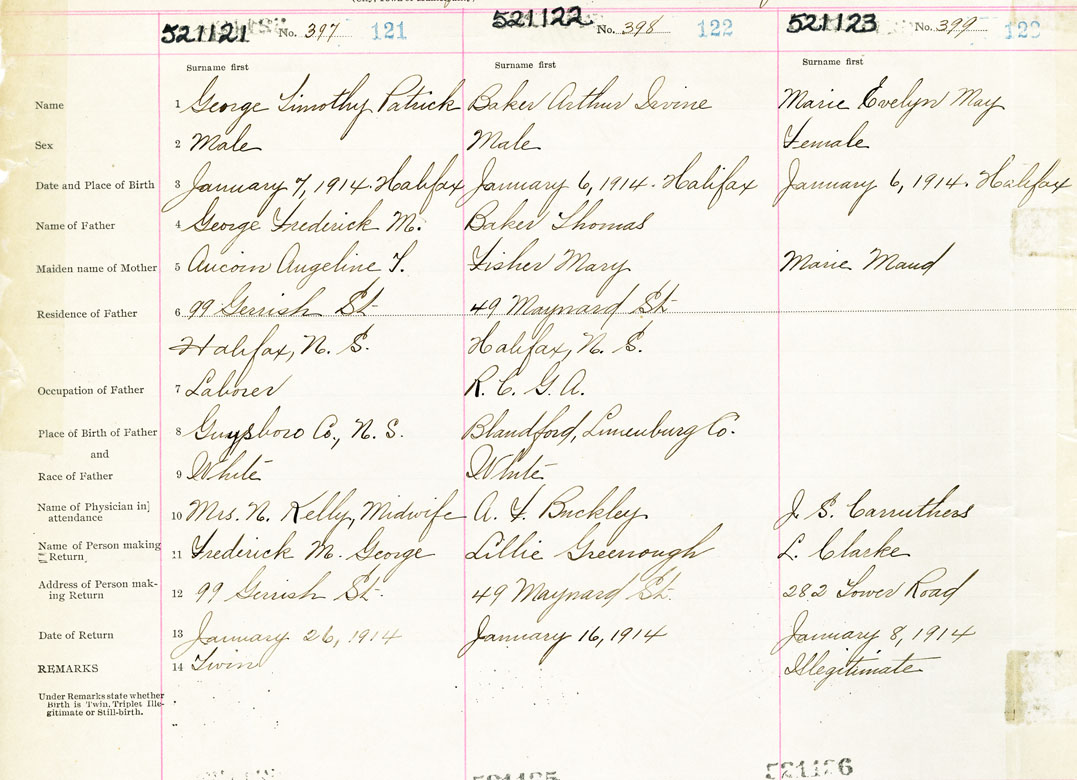 521121 No. 397 121 521122 No. 398 122 521123 No. 399 123
Surname first Surname first Surname first
Name 1 George Timothy Patrick Baker Arthur Irvine Marie Evelyn May
Sex 2 Male Male Female
Date and Place of Birth 3 January 7, 1914. Halifax January 6, 1914. Halifax January 6, 1914. Halifax
Name of Father 4 George Frederick M. Baker Thomas
Maiden name of Mother 5 Aucoin Angeline T. Fisher Mary Marie Maud
Residence of Father 6 99 Gerrish St. 49 Maynard St.
Halifax, N. S. Halifax, N. S.
Occupation of Father 7 Laborer R. C. G. A.
Place of Birth of Father 8 Guysboro Co., N. S. Blandford, Lunenburg Co.
and
Race of Father 9 White White
Name of Physician in attendance 10 Mrs. N. Kelly, Midwife A. F. Buckley J. S. Carruthers
Name of Person making Return 11 Frederick M. George Lillie Greenough L. Clarke
Address of Person mak-
ing Return 12 99 Gerrish St. 49 Maynard St. 282 Tower Road
Date of Return 13 January 26, 1914 January 16, 1914 January 8, 1914
REMARKS 14 Twin Illegitimate
Under Remarks state whether
Birth is Twin, Triplet Ille-
gitimate or Still-birth.
521126